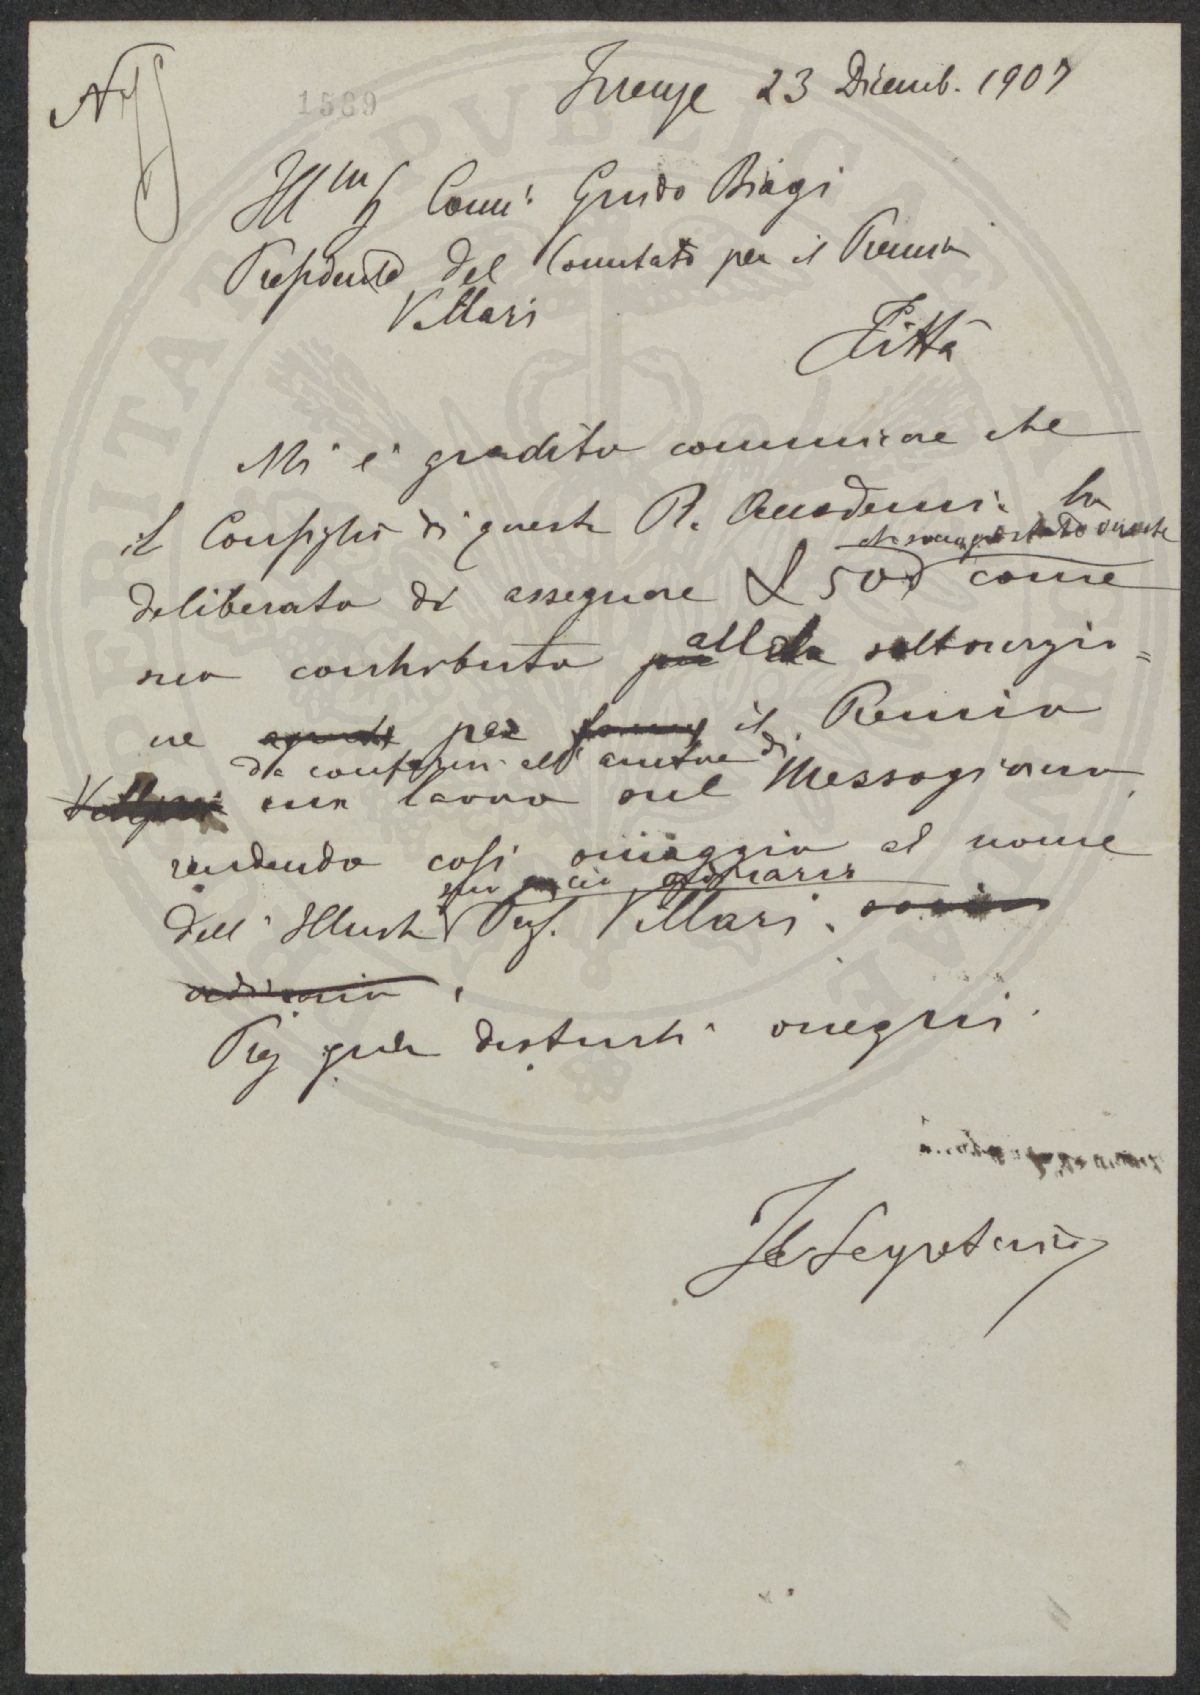 1589
Firenze 23 Dicemb. 1907
Ill.mo Comm. Guido Biagi
Presidente del Comitato per il Premio
Villari
Città
Mi è gradito comunicare che
il Consiglio di questa R. Accademia ha
deliberato di assegnare £ 500 come
suo contributo alla sottoscrizio=
ne per il Premio
da conferirsi all'autore di
Villari un lavoro sul Mezzogiorno
rendendo così omaggio al nome
suo socio ordinario
dell'Illustre Prof. Villari.
ordinario
ossequi
Il Segretario